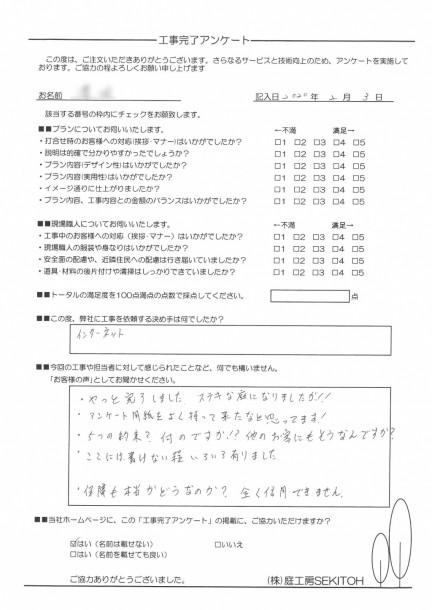 工事完了アンケート
この度は、ご注文いただきありがとうございます。さらなるサービスと技術向上のため、アンケートを実施して
おります。ご協力の程よろしくお願い申し上げます
お名前 記入日 2020年 2月 3日
該当する番号の枠内にチェックをお願致します。
■■プランについてお伺いいたします。 ←不満 満足→
・打合せ時のお客様への対応(挨拶・マナー)はいかがでしたか? □1 □2 □3 □4 □5
・説明は的確で分かりやすかったでしょうか? □1 □2 □3 □4 □5
・プラン内容(デザイン性)はいかがでしたか? □1 □2 □3 □4 □5
・プラン内容(実用性)はいかがでしたか? □1 □2 □3 □4 □5
・イメージ通りに仕上がりましたか? □1 □2 □3 □4 □5
・プラン内容、工事内容との金額のバランスはいかがでしたか? □1 □2 □3 □4 □5
■■現場職人についてお伺いいたします。 ←不満 満足→
・工事中のお客様への対応(挨拶・マナー)はいかがでしたか? □1 □2 □3 □4 □5
・現場職人の服装や身なりはいかがでしたか? □1 □2 □3 □4 □5
・安全面の配慮や、近隣住民への配慮は行き届いていましたか? □1 □2 □3 □4 □5
・道具・材料の後片付けや清掃はしっかりできていましたか? □1 □2 □3 □4 □5
■■トータルの満足度を100点満点の点数で採点してください。 点
■■この度、弊社に工事を依頼する決め手は何でしたか?
インターネット
■■今回の工事や担当者に対して感じられたことなど、何でも構いません。
「お客様の声」としてお聞かせください。
・やっと完了しました ステキな庭になりましたが!!
・アンケート用紙をよく持って来たなと思ってます!
・5つの約束? 何のですか!? 他のお客にもどうなんですか?
・ここには書けない程 いろいろ有りました
・保障も本当かどうなのか? 全く信用できません.
■■当社ホームページに、この「工事完了アンケート」の掲載に、ご協力いただけますか?
☑はい(名前は載せない) □いいえ
□はい(名前を載せても良い)
ご協力ありがとうございました。 (株)庭工房SEKITOH